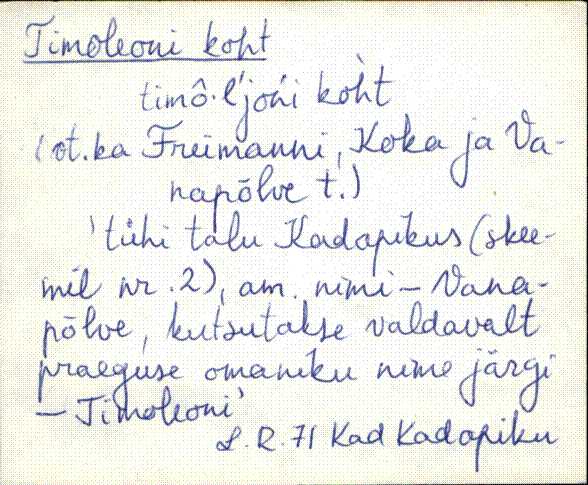 Timoleoni koht
timô·l'jon'i kòht
(vt. ka Freimanni, Koka ja Va-
napõlve t.)
'tühi talu Kadapikus (skee-
mil nr. 2), am. nimi - Vana-
põlve, kutsutakse valdavalt
praeguse omaniku nime järgi
- Timoleoni'
L. R. 71 Kad Kadapiku